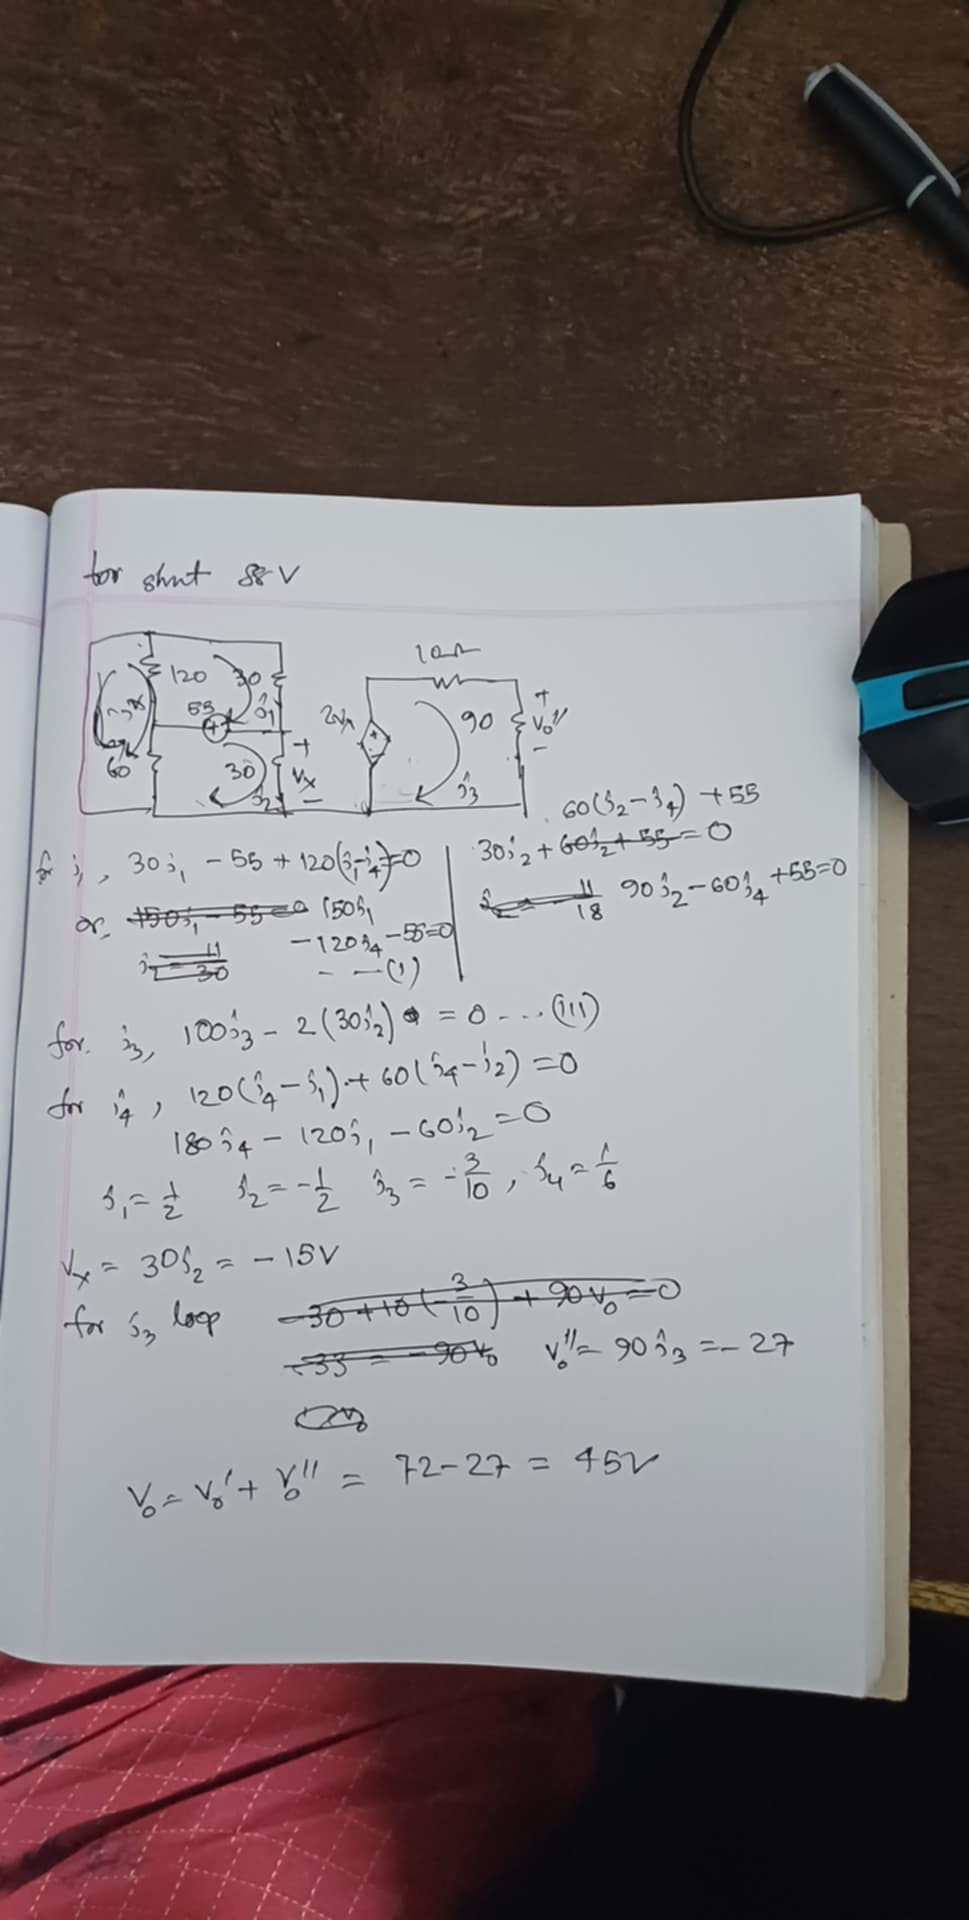 for shnt 88 V
120 30 i₁ 55 60 30 i₂ + Vx −
10Ω 2Vx + − 90 + V₀'' − i₃
for i₁, 30i₁ − 55 + 120(i₁−i₄)=0
or, 150i₁ − 55 = 0 150i₁
− 120i₄ − 55=0
i₁ = 11/30
- - - (1)
60(i₂−i₄) + 55
30i₂ + 60i₂ + 55 = 0
11/18 90i₂ − 60i₄ + 55=0
for i₃, 100i₃ − 2(30i₂) = 0 ... (iii)
for i₄, 120(i₄−i₁) + 60(i₄−i₂) = 0
180i₄ − 120i₁ − 60i₂ = 0
i₁ = 1/2 i₂ = −1/2 i₃ = −3/10, i₄ = 1/6
Vx = 30i₂ = − 15V
for i₃ loop −30 + 10(−3/10) + 90V₀ = 0
−33 = −90V₀ V₀'' = 90i₃ = − 27
V₀ = V₀' + V₀'' = 72−27 = 45V